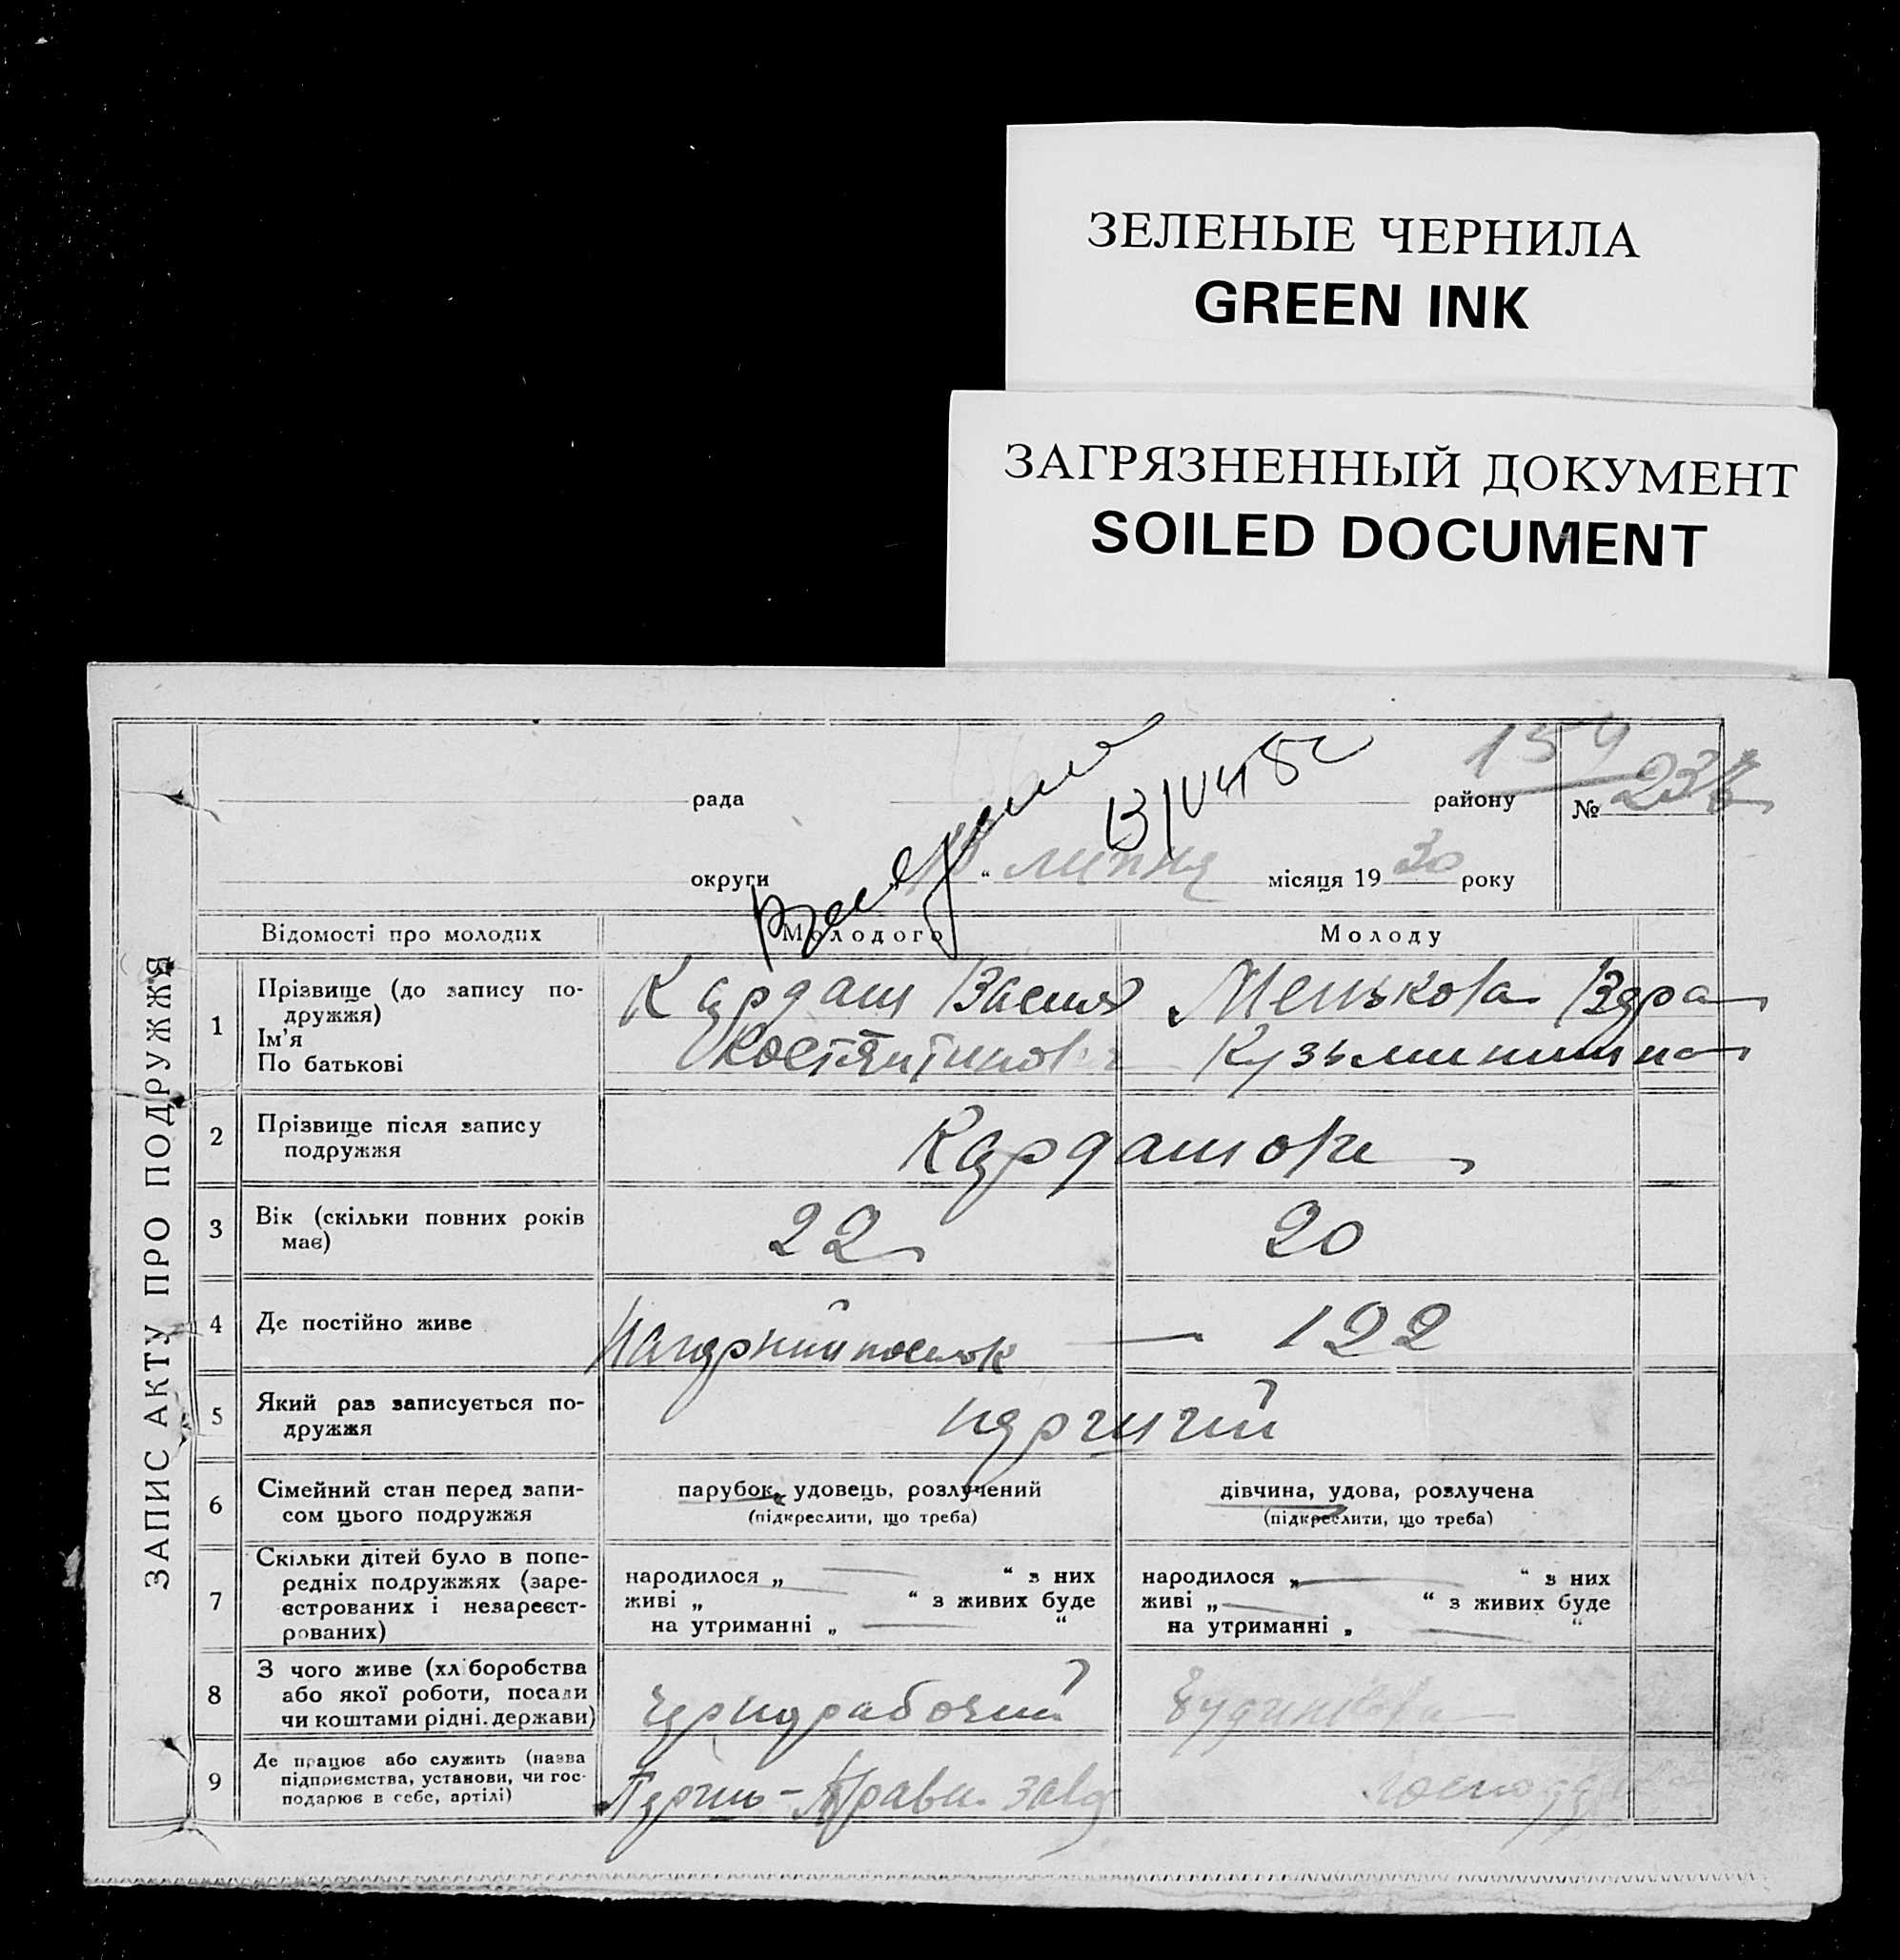 ЗЕЛЕНЫЕ ЧЕРНИЛА
GREEN INK
ЗАГРЯЗНЕННЫЙ ДОКУМЕНТ
SOILED DOCUMENT
ЗАПИС АКТУ ПРО ПОДРУЖЖЯ
159
рада району № 23
округи " липня місяця 1930 року
Відомості про молодих Молодого Молоду
1 Прізвище (до запису по-
дружжя)
Ім'я
По батькові
Кардаш Менькова Вера
Кузьминишна
2 Прізвище після запису
подружжя
Кардашови
3 Вік (скільки повних років
має)
22 20
4 Де постійно живе
122
5 Який раз записується по-
дружжя
перший
6 Сімейний стан перед запи-
сом цього подружжя
парубок, удовець, розлучений
(підкреслити, що треба)
дівчина, удова, розлучена
(підкреслити, що треба)
7 Скільки дітей було в попе-
редніх подружжях (заре-
естрованих і незареест-
рованих)
народилося „ — “ з них
живі „ “ з живих буде
на утриманні „ — “
народилося „ — “ з них
живі „ — “ з живих буде
на утриманні „ — “
8 З чого живе (хліборобства
або якої роботи, посади
чи коштами рідні. держави)
чернерабочий
9 Де працює або служить (назва
підприємства, установи, чи гос-
подарює в себе, артілі)
завд